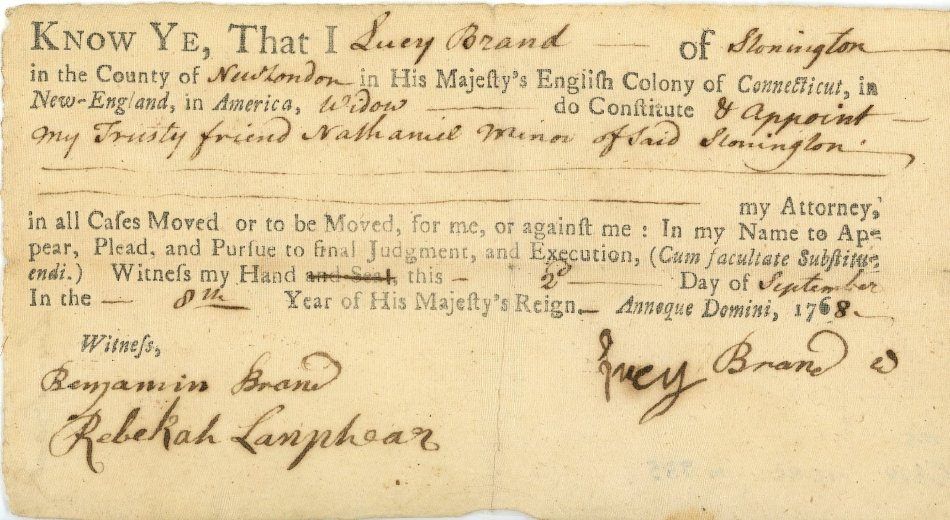 KNOW YE, That I Lucy Brand — of Stonington —
in the County of New London in His Majeſty's Engliſh Colony of Connecticut, in
New-England, in America, Widow — do Conſtitute & Appoint —
my Trusty friend Nathaniel Minor of Said Stonington
my Attorney,
in all Caſes Moved or to be Moved, for me, or againſt me : In my Name to Ap-
pear, Plead, and Purſue to final Judgment, and Execution, (Cum facultate Subſtitu-
endi.) Witneſs my Hand and Seal, this — 2d — Day of September
In the — 8th Year of His Majeſty's Reign. — Annoque Domini, 1768.
Witneſs,
Benjamin Brand
Lucy Brand
Rebekah Lanphear